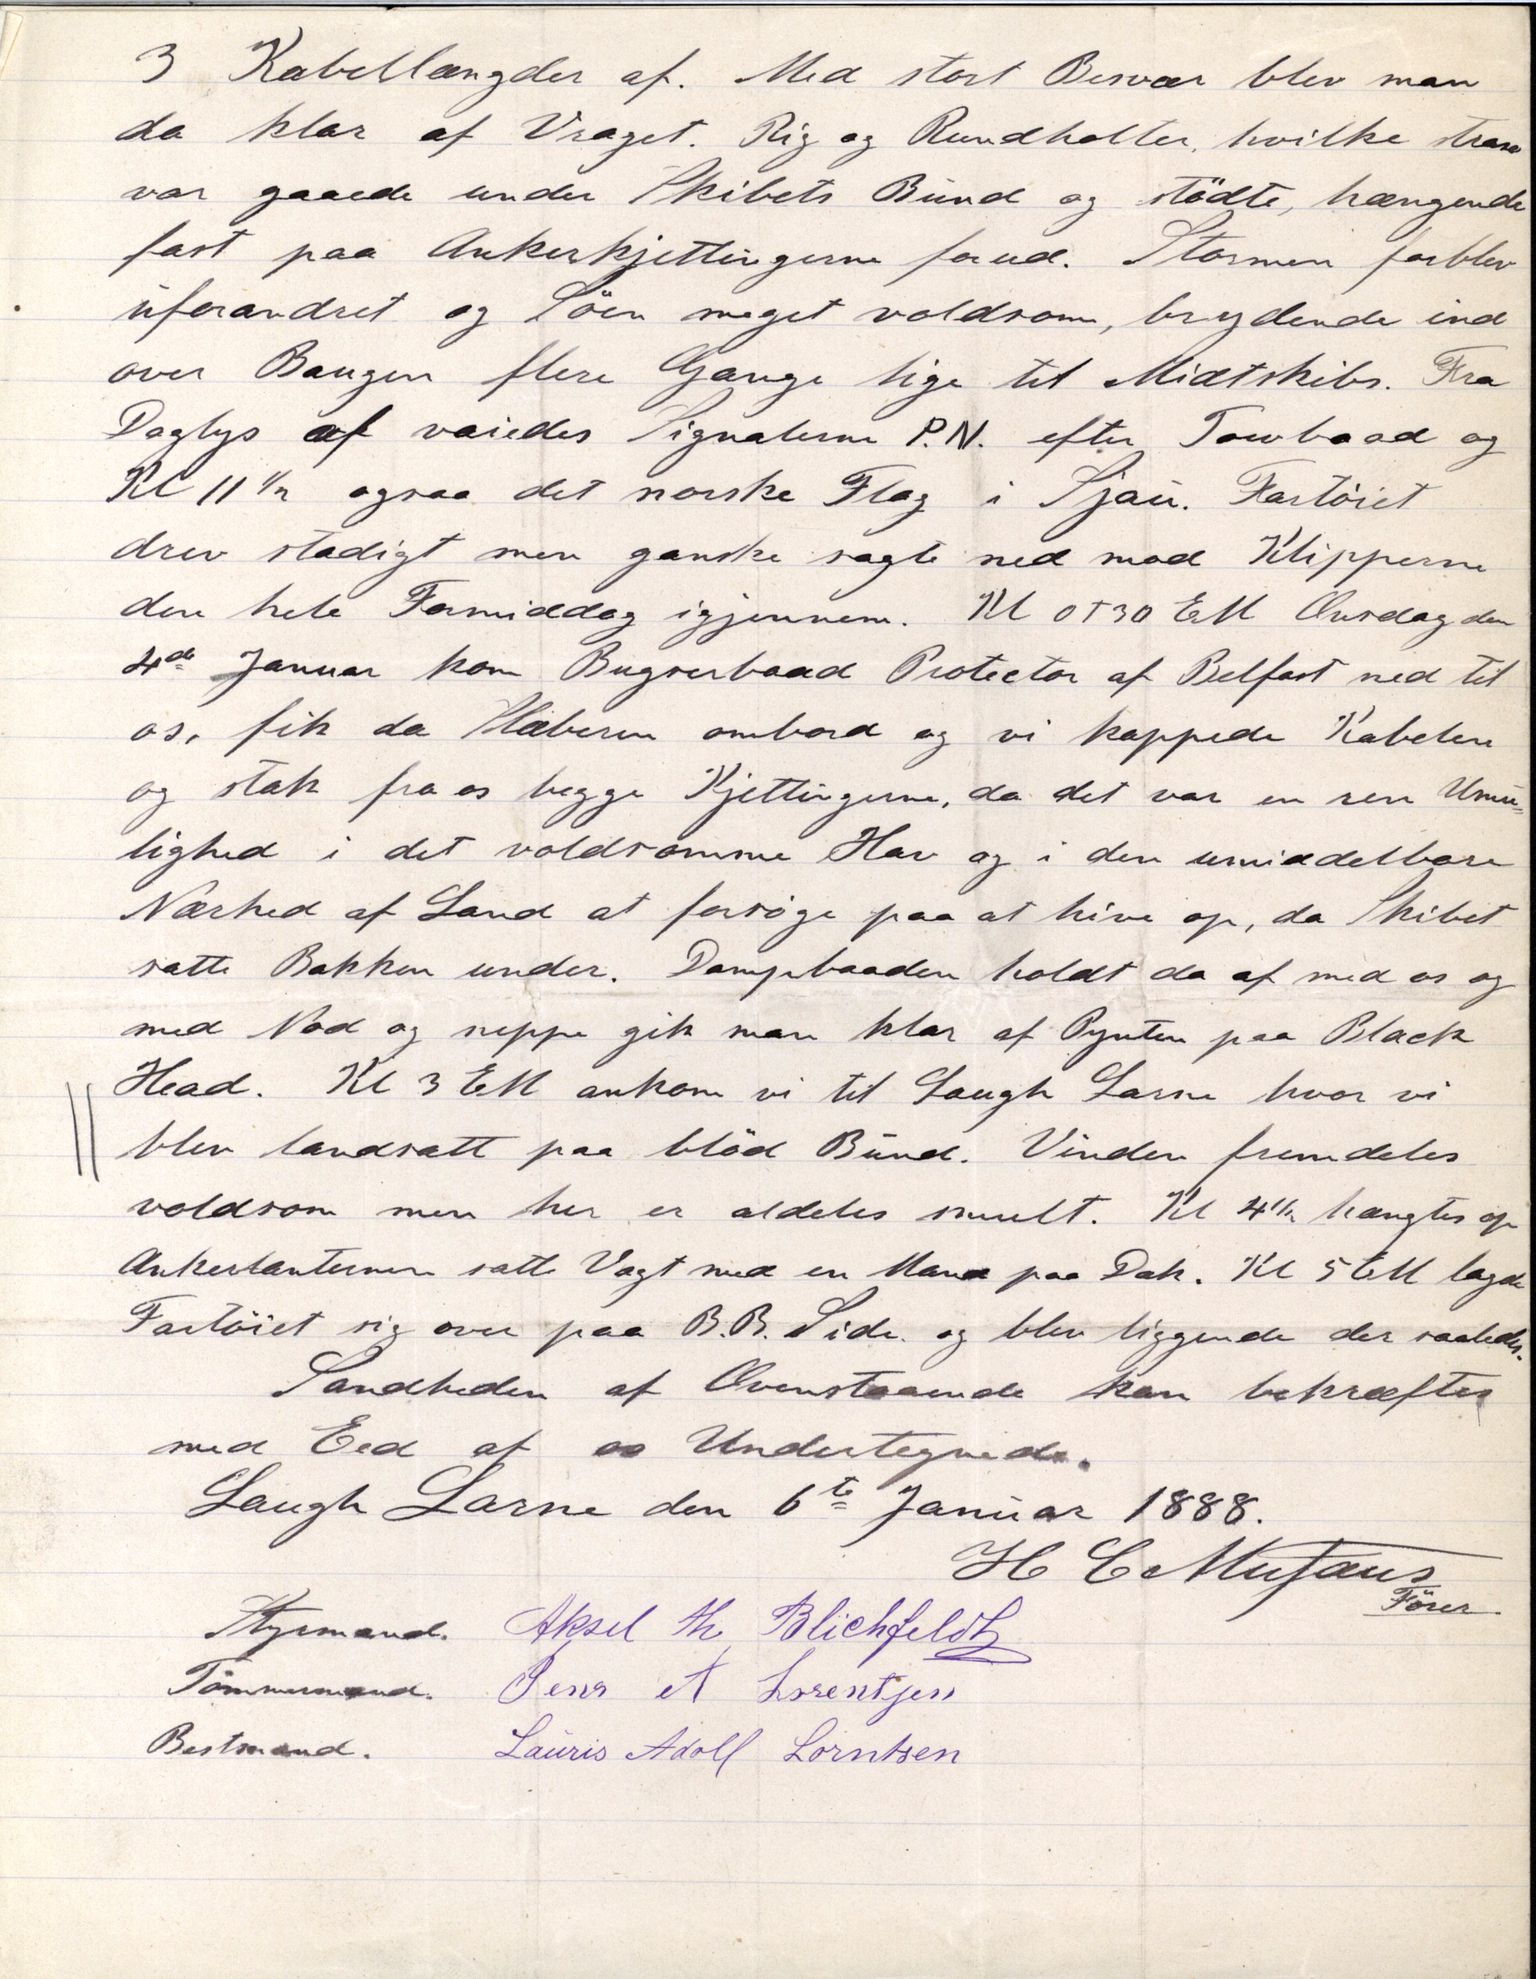 3 Kabellængder af. Med stort Besvær blev man
da klar af Vraget. Rig og Rundholter, hvilke strax
var gaaede under Skibets Bund og stödte, hængende
fast paa Ankerkjettingerne forud. Stormen forblev
uforandret og Söen meget voldsom, brydende ind
over Baugen flere Gange lige til Midtskibs. Fra
Daglys af vaiedes Signalerne P.N. efter Towbaad og
Kl 11 1/2 ogsaa det norske Flag i Sjau. Fartöiet
drev stadigt men ganske sagte ned mod Klipperne
den hele Formiddag igjennem. Kl 0 T 30 EM Onsdag den
4de Januar kom Bugserbaad Protector af Belfast ned til
os, fik da Slæberen ombord og vi kappede Kabelen
og stak fra os begge Kjettingerne, da det var en ren Umu=
lighed i det voldsomme Hav og i den umiddelbare
Nærhed af Land at forsöge paa at hive op, da Skibet
satte Bakken under. Dampbaaden holdt da af med os og
med Nöd og neppe gik man klar af Pynten paa Black
Head. Kl 3 EM ankom vi til Laugh Larne hvor vi
blev landsatt paa blöd Bund. Vinden fremdeles
voldsom men her er aldeles smult. Kl 4 1/2 hængtes op
Ankerlanternen satte Vagt med en Mand paa Dæk. Kl 5 EM lagde
Fartöiet sig over paa B.B. Side og blev liggende der saaledes.
Sandheden af Ovenstaaende kan bekræftes
med Eed af os Undertegnede.
Laugh Larne den 6te Januar 1888.
H C Mufaus
Förer.
Styrmand. Aksel Th Blichfeldt
Tömmermand. Jens A Lorentsen
Bestmand. Lauris Adolf Lorntsen